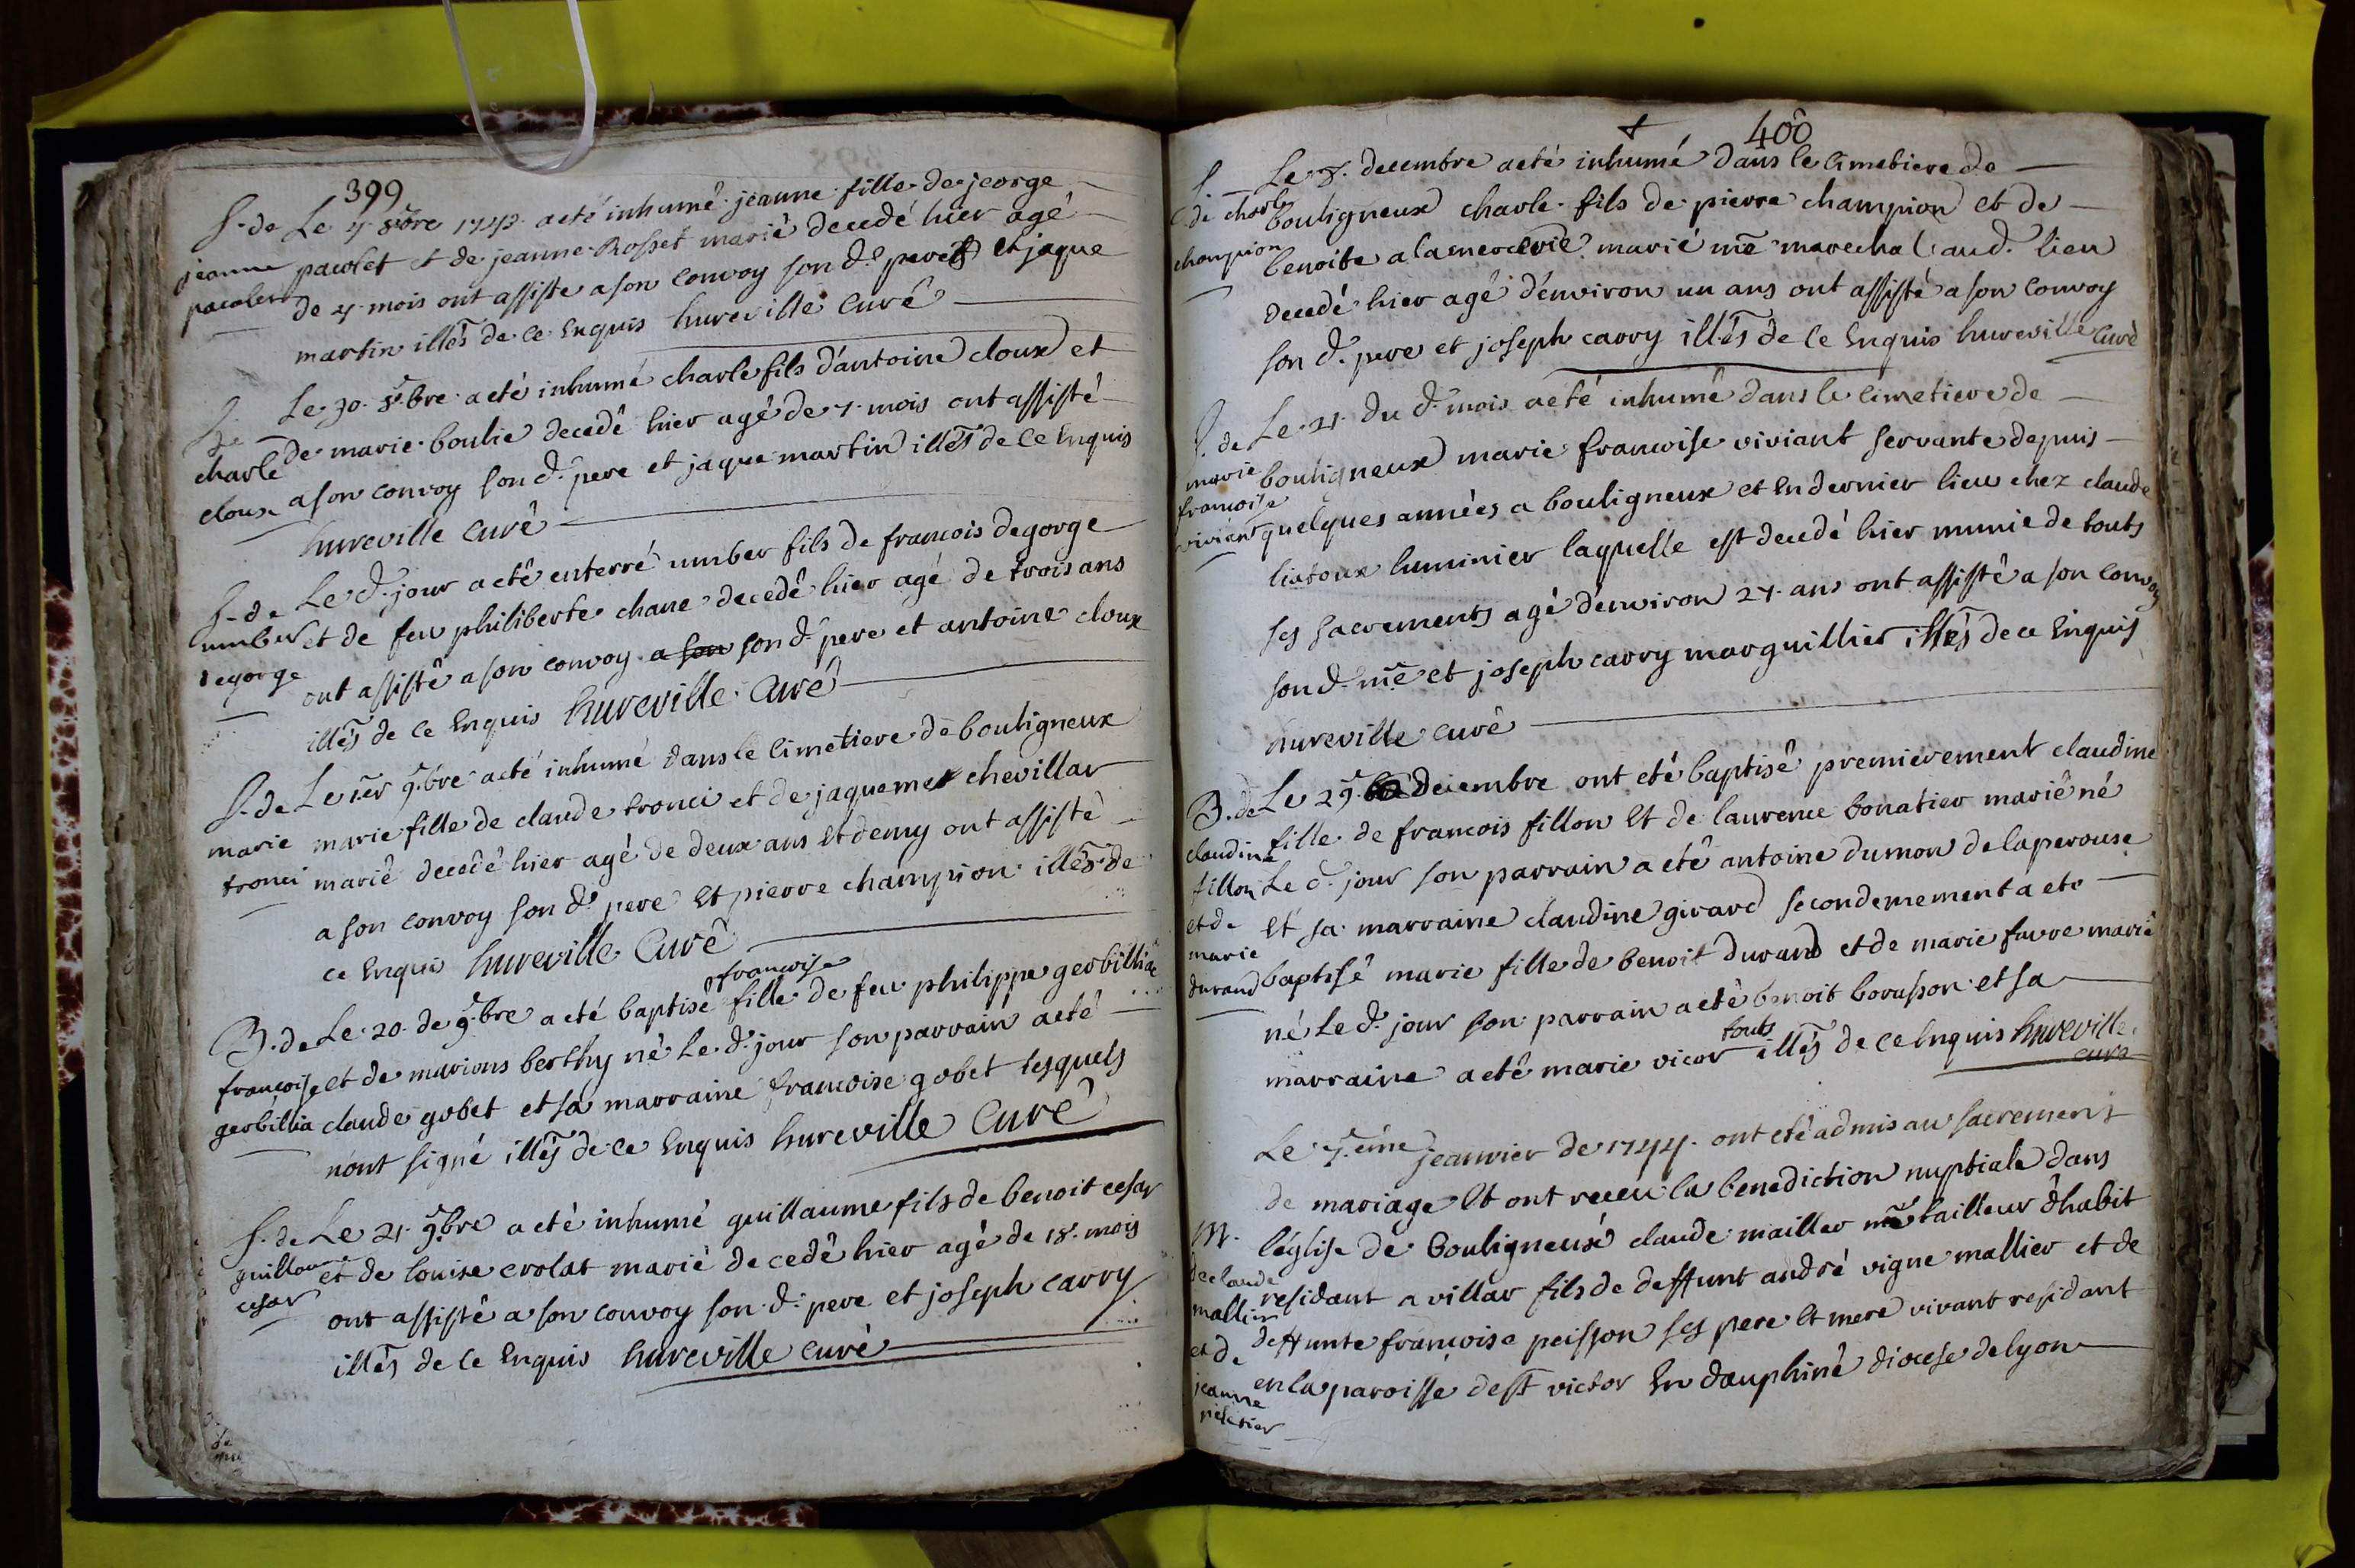 399
S. de Le 4 8bre 1743 a eté inhumé jeanne fille de jeorge
jeanne pacolet et de jeanne Rosset marié decedé hier agé
pacolet de 4 mois ont assiste a son convoy son d. pere et jaque
martin illes de ce Enquis hureville Curé
S. de Le 30. 8bre a eté inhumé charle fils d'antoine cloux et
charle de marie boulie decedé hier agé de 7. mois ont assisté
cloux a son convoy son d. pere et jaque martin illes de ce Enquis
hureville Curé
S. de Le d. jour a eté enterré umber fils de francois degorge
umber et de feu philiberte chane decedé hier agé de trois ans
degorge ont assisté a son convoy a son son d. pere et antoine cloux
illes de ce Enquis hureville Curé
S. de Le 1er 9bre a eté inhumé dans le Cimetiere de bouligneux
marie marie fille de claude tronci et de jaqueme chevillar
tronci marié decedé hier agé de deux ans et demy ont assisté
a son convoy son d. pere et pierre champion illes de
ce Enquis hureville Curé
francoise
B. de Le 20. de 9bre a eté baptisé fille de feu philippe gerbillia
francoise et de marions berthy né Le d. jour son parrain a eté
gerbillia claude gobet et sa marraine francoise gobet lesquels
n'ont signé illes de ce Enquis hureville Curé
S. de Le 21. 9bre a eté inhumé guillaume fils de benoit cesar
guillaume et de louise crolat marié decedé hier agé de 18. mois
cesar ont assisté a son convoy son d. pere et joseph carry
illes de ce Enquis hureville curé
400
S. Le 8. decembre a eté inhumé dans le Cimetiere de
de charle bouligneux charle fils de pierre champion et de
champion benoite a la mercerie marié me marechal aud. lieu
decedé hier agé d'environ un ans ont assisté a son Convoy
son d. pere et joseph carry illes de ce Enquis hureville Curé
S. de Le 21. du d. mois a eté inhumé dans le Cimetiere de
marie bouligneux marie francoise viviant servante depuis
francoise quelques années a bouligneux et en dernier lieu chez claude
viviant liatoux luminier laquelle est decedé hier munie de touts
ses sacrements agé d'environ 24. ans ont assisté a son Convoy
son d. me et joseph carry marguillier illes de ce Enquis
hureville curé
B. de Le 29. decembre ont eté baptisé premierement claudine
claudine fille de francois fillon et de laurence bonatier marié né
fillon Le d. jour son parrain a eté antoine dumon de laperouse
et de et sa marraine claudine girard secondemement a ete
marie baptisé marie fille de benoit durand et de marie favre marié
durand né Le d. jour son parrain a eté benoit borasson et sa
touts
marraine a eté marie vicor illes de ce Enquis hureville
curé
Le 7.eme jeanvier de 1744. ont eté admis au sacrement
de mariage et ont receu la benediction nuptiale dans
M. l'église de bouligneux claude mailler me tailleur d'habit
de claude residant a villar fils de deffunt andré vigne mallier et de
mallier deffunte francoise peisson ses pere et mere vivant residant
et de en la paroisse de st victor En dauphiné diocese de lyon
jeanne